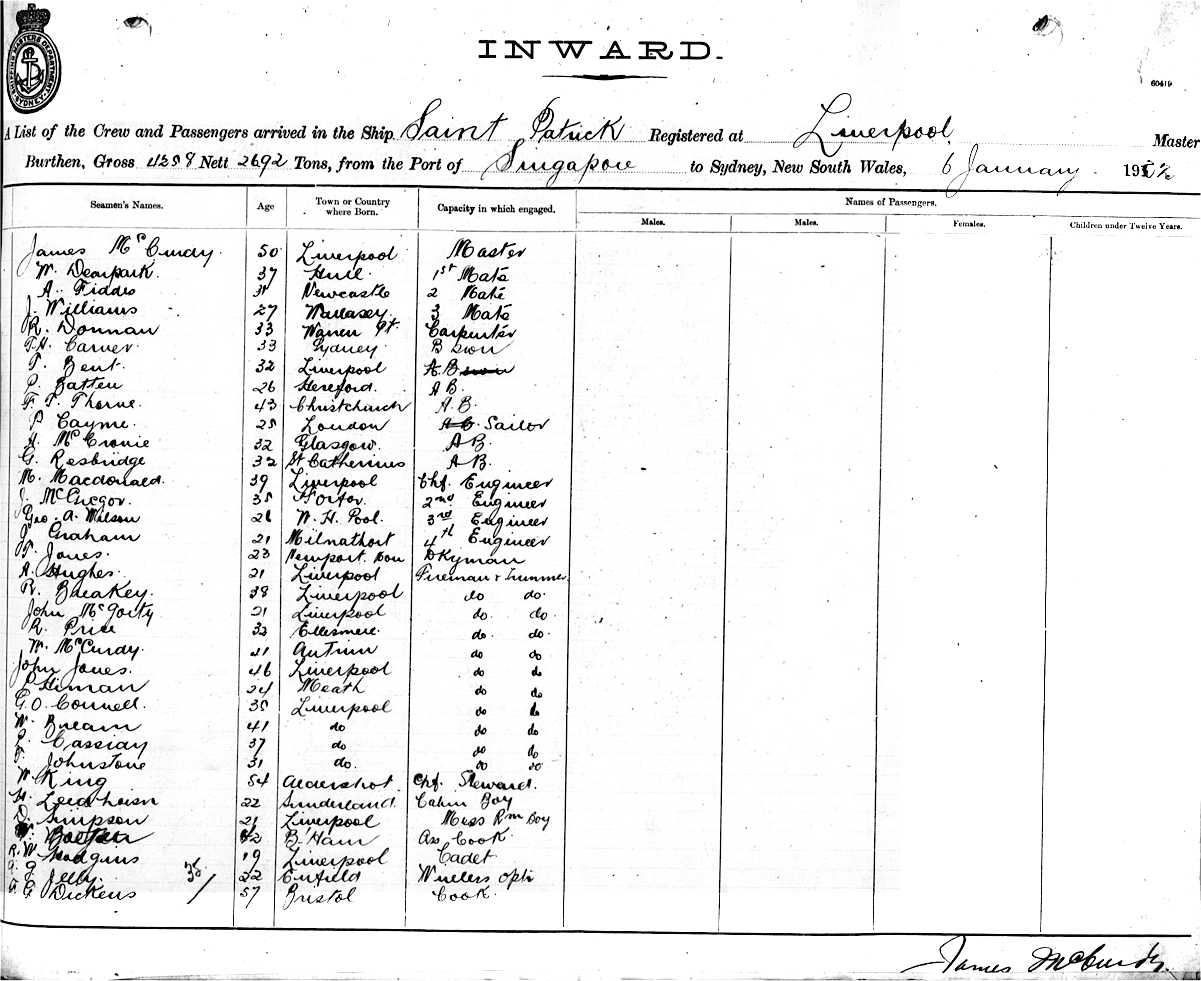 SHIPPING MASTERS DEPARTMENT. SYDNEY.
INWARD.
60419
A List of the Crew and Passengers arrived in the Ship Saint Patrick Registered at Liverpool Master
Burthen, Gross 4258 Nett 2692 Tons, from the Port of Singapore to Sydney, New South Wales, 6 January 19
Seamen's Names. Age Town or Country where Born. Capacity in which engaged. Names of Passengers.
Males. Males. Females. Children under Twelve Years.
James McCurdy. 50 Liverpool Master
W. Dearpark. 37 Hull 1st Mate
A. Fiddes Newcastle 2 Mate
J. Williams 27 Wallasey 3 Mate
R. Donnan 33 Warren Pt. Carpenter
T.H. Carver 33 Sydney B swn
T. Bent. 32 Liverpool A.B.
P. Batten 26 Hereford. A B.
F. T. Thorne. 43 Christchurch A. B.
P Cayme. 25 London Sailor
A. McCronie 32 Glasgow. A B.
G. Resbridge 32 St Catherines A B.
M. Macdonald. 39 Liverpool Chf. Engineer
J. McGregor. 35 2nd Engineer
Geo. A. Wilson 26 W. H. Pool. 3rd Engineer
J. Graham 21 Milnathort 4th Engineer
T. Jones. 23 Newport. Mon DKyman
A. Hughes. 21 Liverpool Fireman & Trimmer
R. Breakey. 38 Liverpool do do.
John McGorty 21 Liverpool do. do.
R. Price 32 Ellesmere. do. do.
W. McCurdy. 21 Antrim do do
John Jones. 46 Liverpool do do
P Himan 24 Meath do do
G. O. Connell. 35 Liverpool do do
W. Bream 41 do do do
P. Cassidy 37 do do do
T. Johnstone 31 do. do do
W. King 54 Aldershot. Chf. Steward.
H. 22 Sunderland. Cabin Boy
D. Simpson 21 Liverpool Mess Rm Boy
42 B'Ham Ass Cook
R. W Hodgins 19 Liverpool Cadet.
G. Jelly. 22 Enfield Wireless Optr
A G Dickens 35/ 57 Bristol Cook.
James McCurdy.